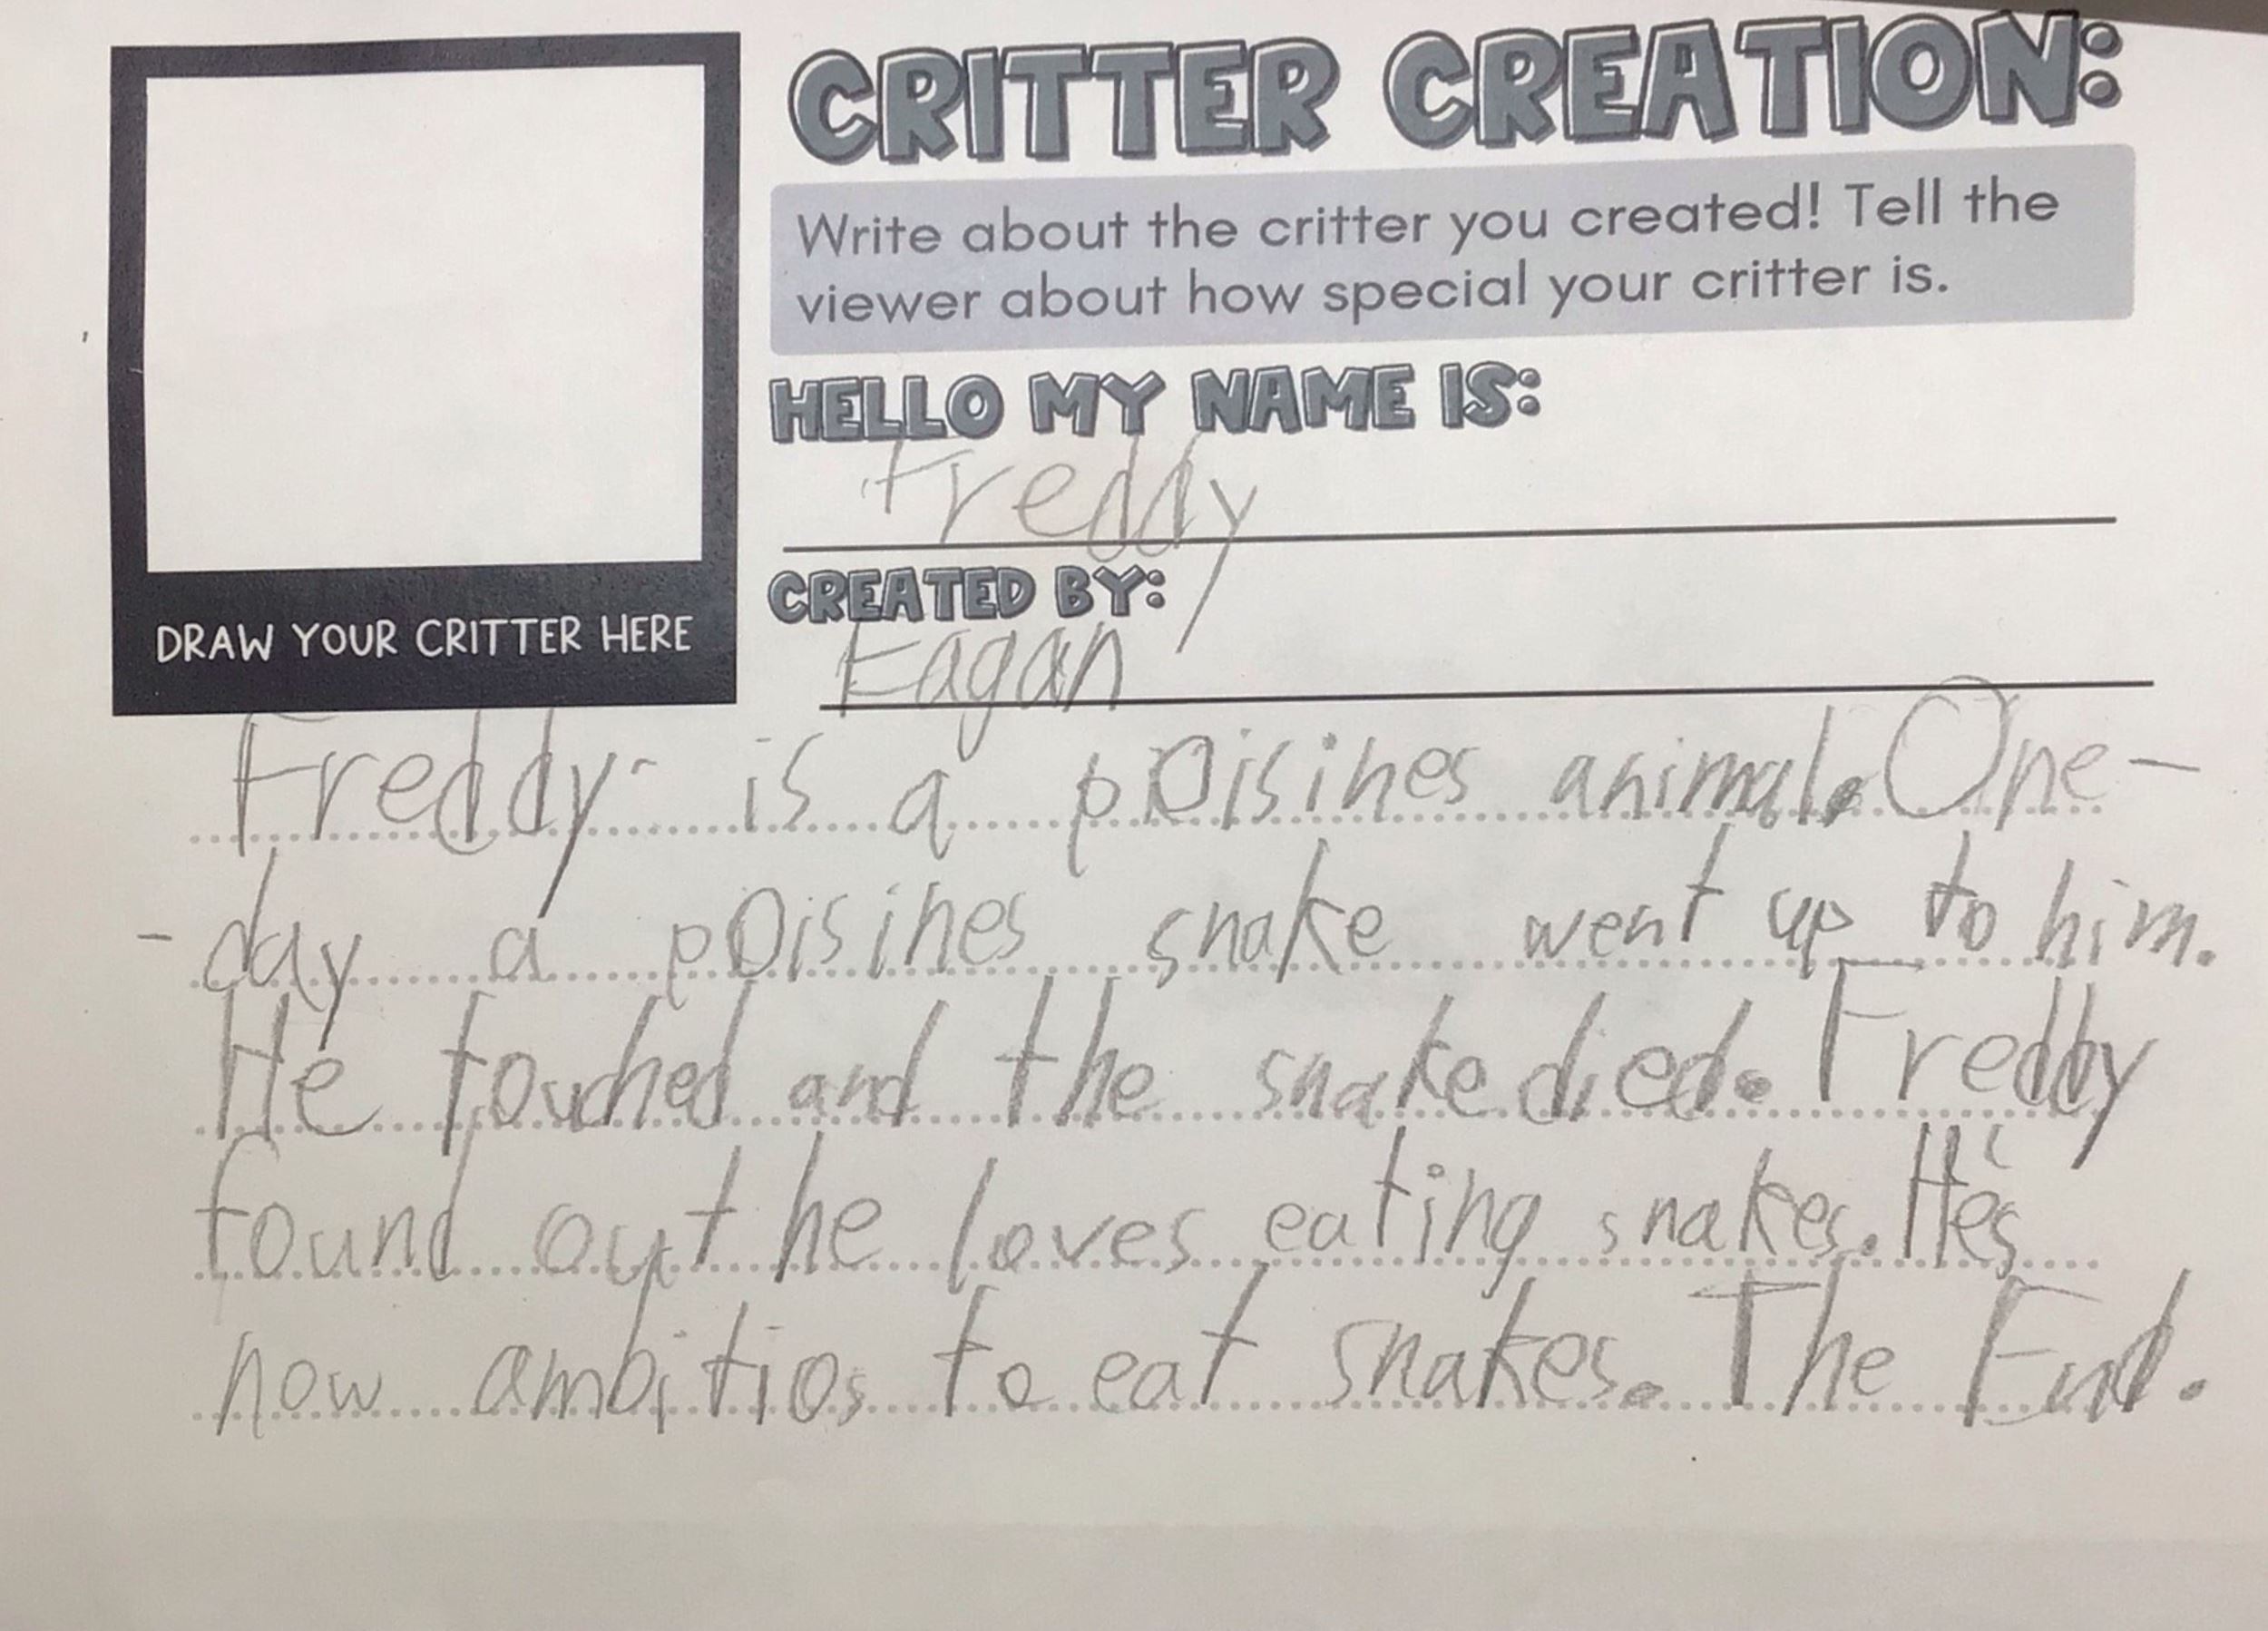 CRITTER CREATION:
Write about the critter you created! Tell the
viewer about how special your critter is.
HELLO MY NAME IS:
Freddy
CREATED BY:
Eagan
DRAW YOUR CRITTER HERE
Freddy is a poisines animal. One-
-day a poisines snake went up to him.
He touched and the snake died. Freddy
found out he loves eating snakes. He's
now ambitios to eat snakes. The End.